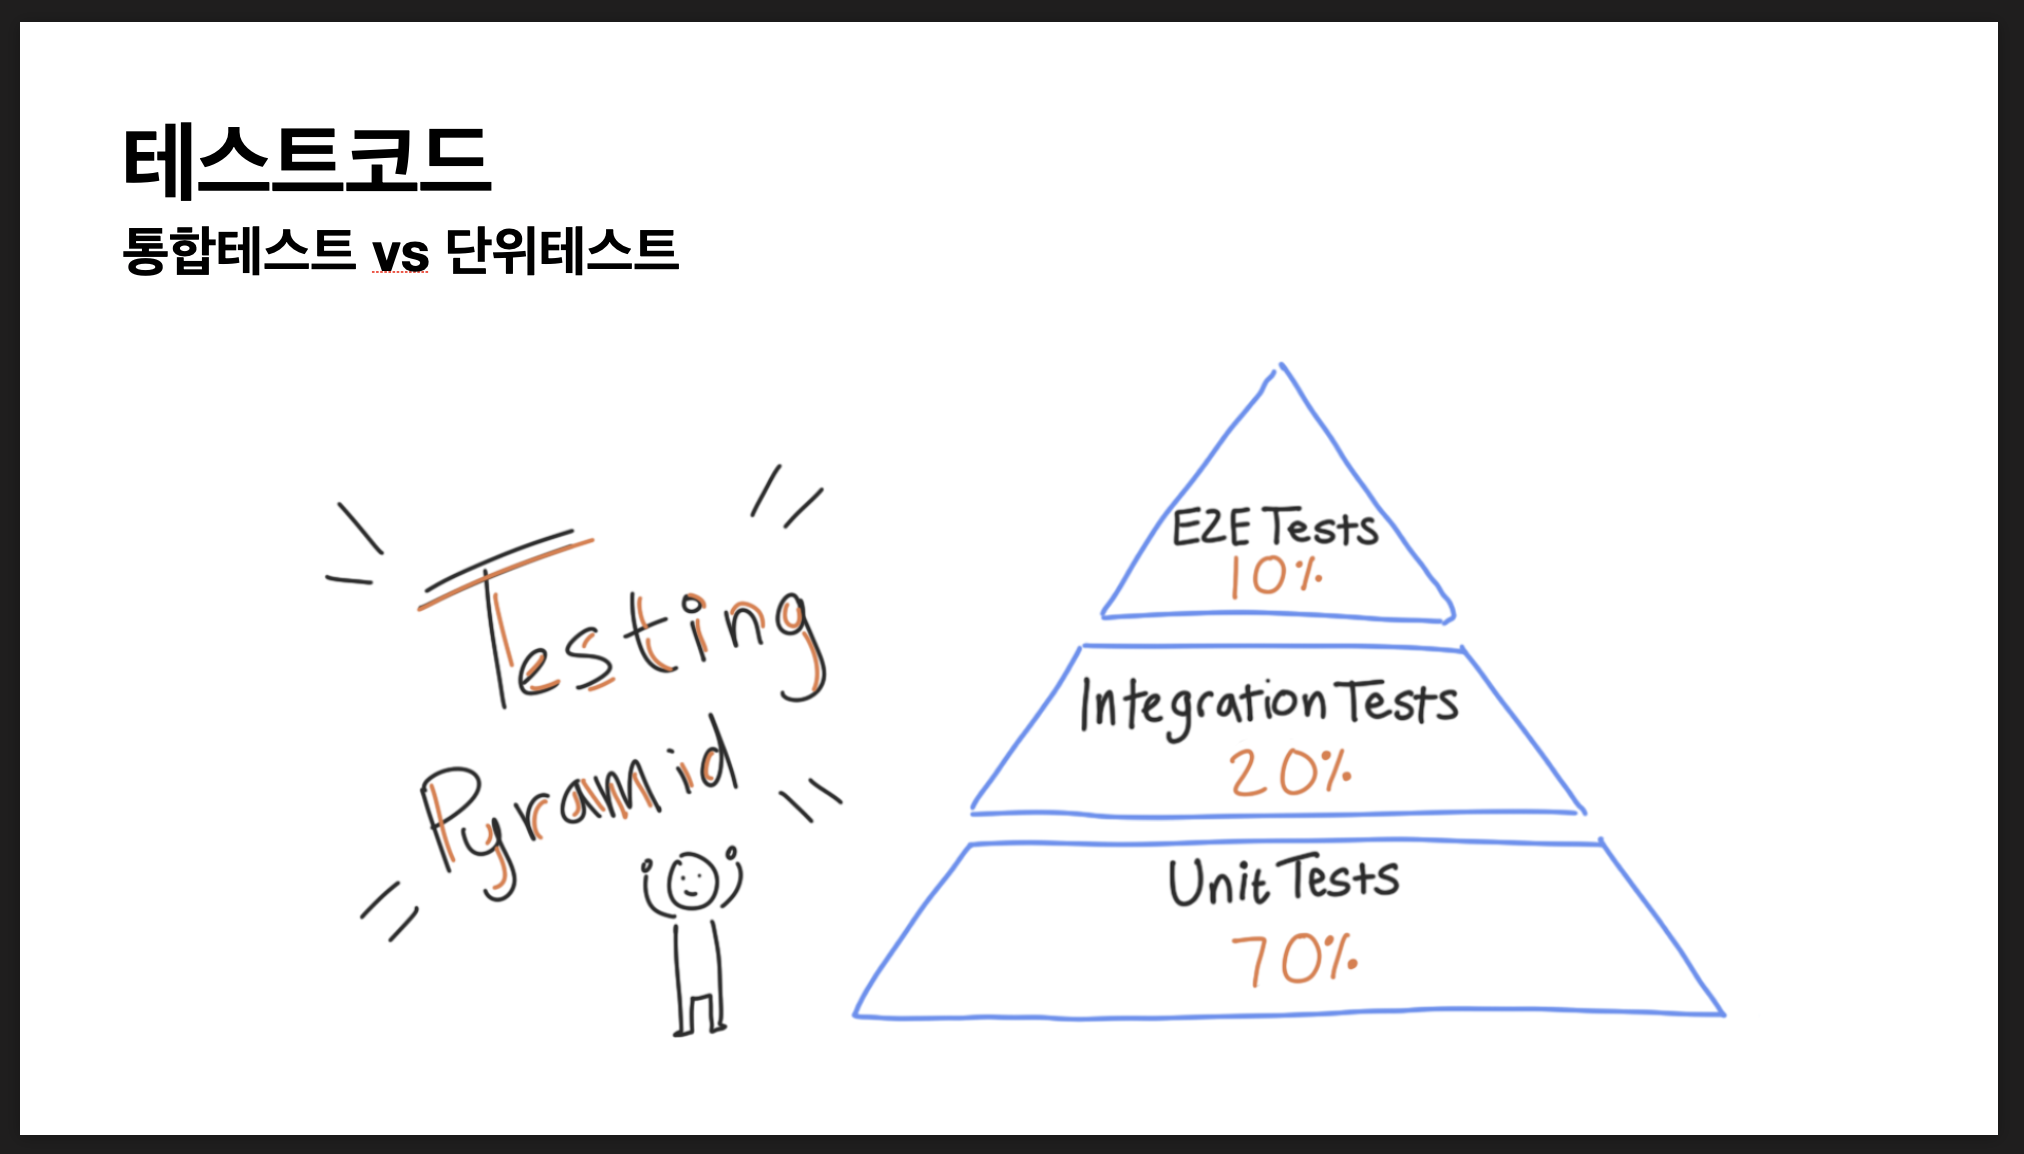 테스트코드
통합테스트 vs 단위테스트
Testing
Pyramid
E2E Tests
10%
Integration Tests
20%
Unit Tests
70%